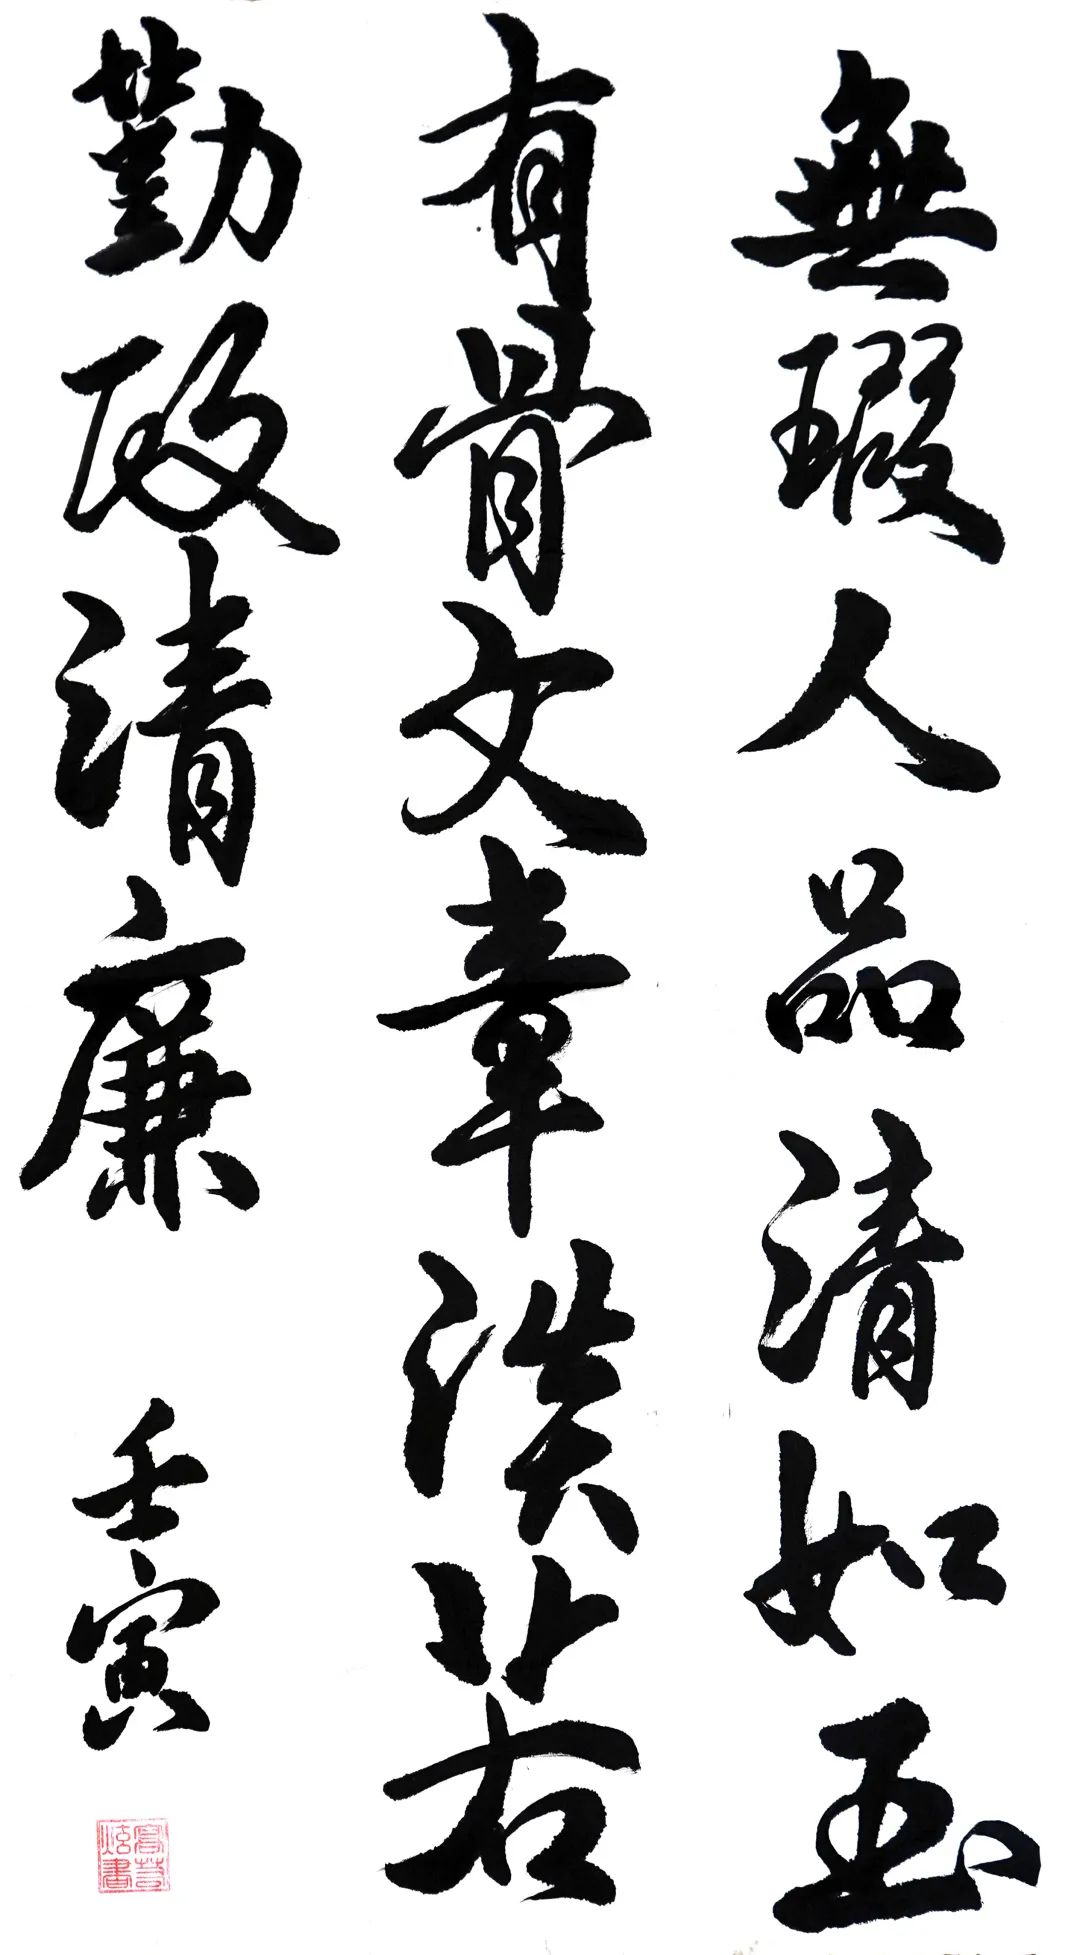 無瑕人品清如玉
有骨文章若
勤政清廉
壬寅